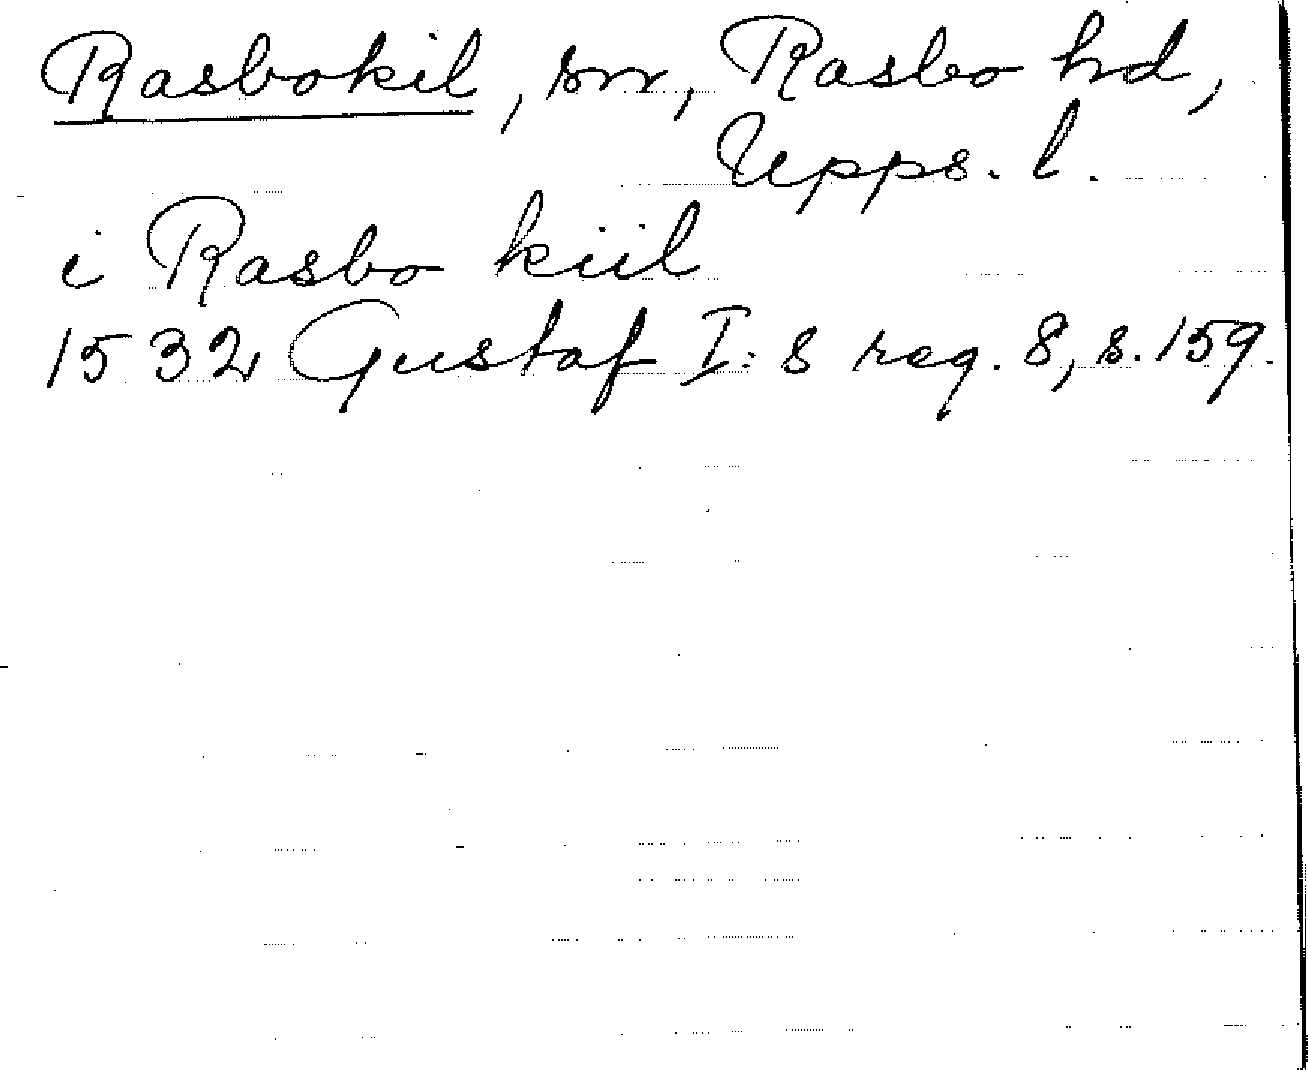 Rasbokil, sn, Rasbo hd,
Upps. l.
i Rasbo kiil
1532 Gustaf I:s reg. 8, s. 159.